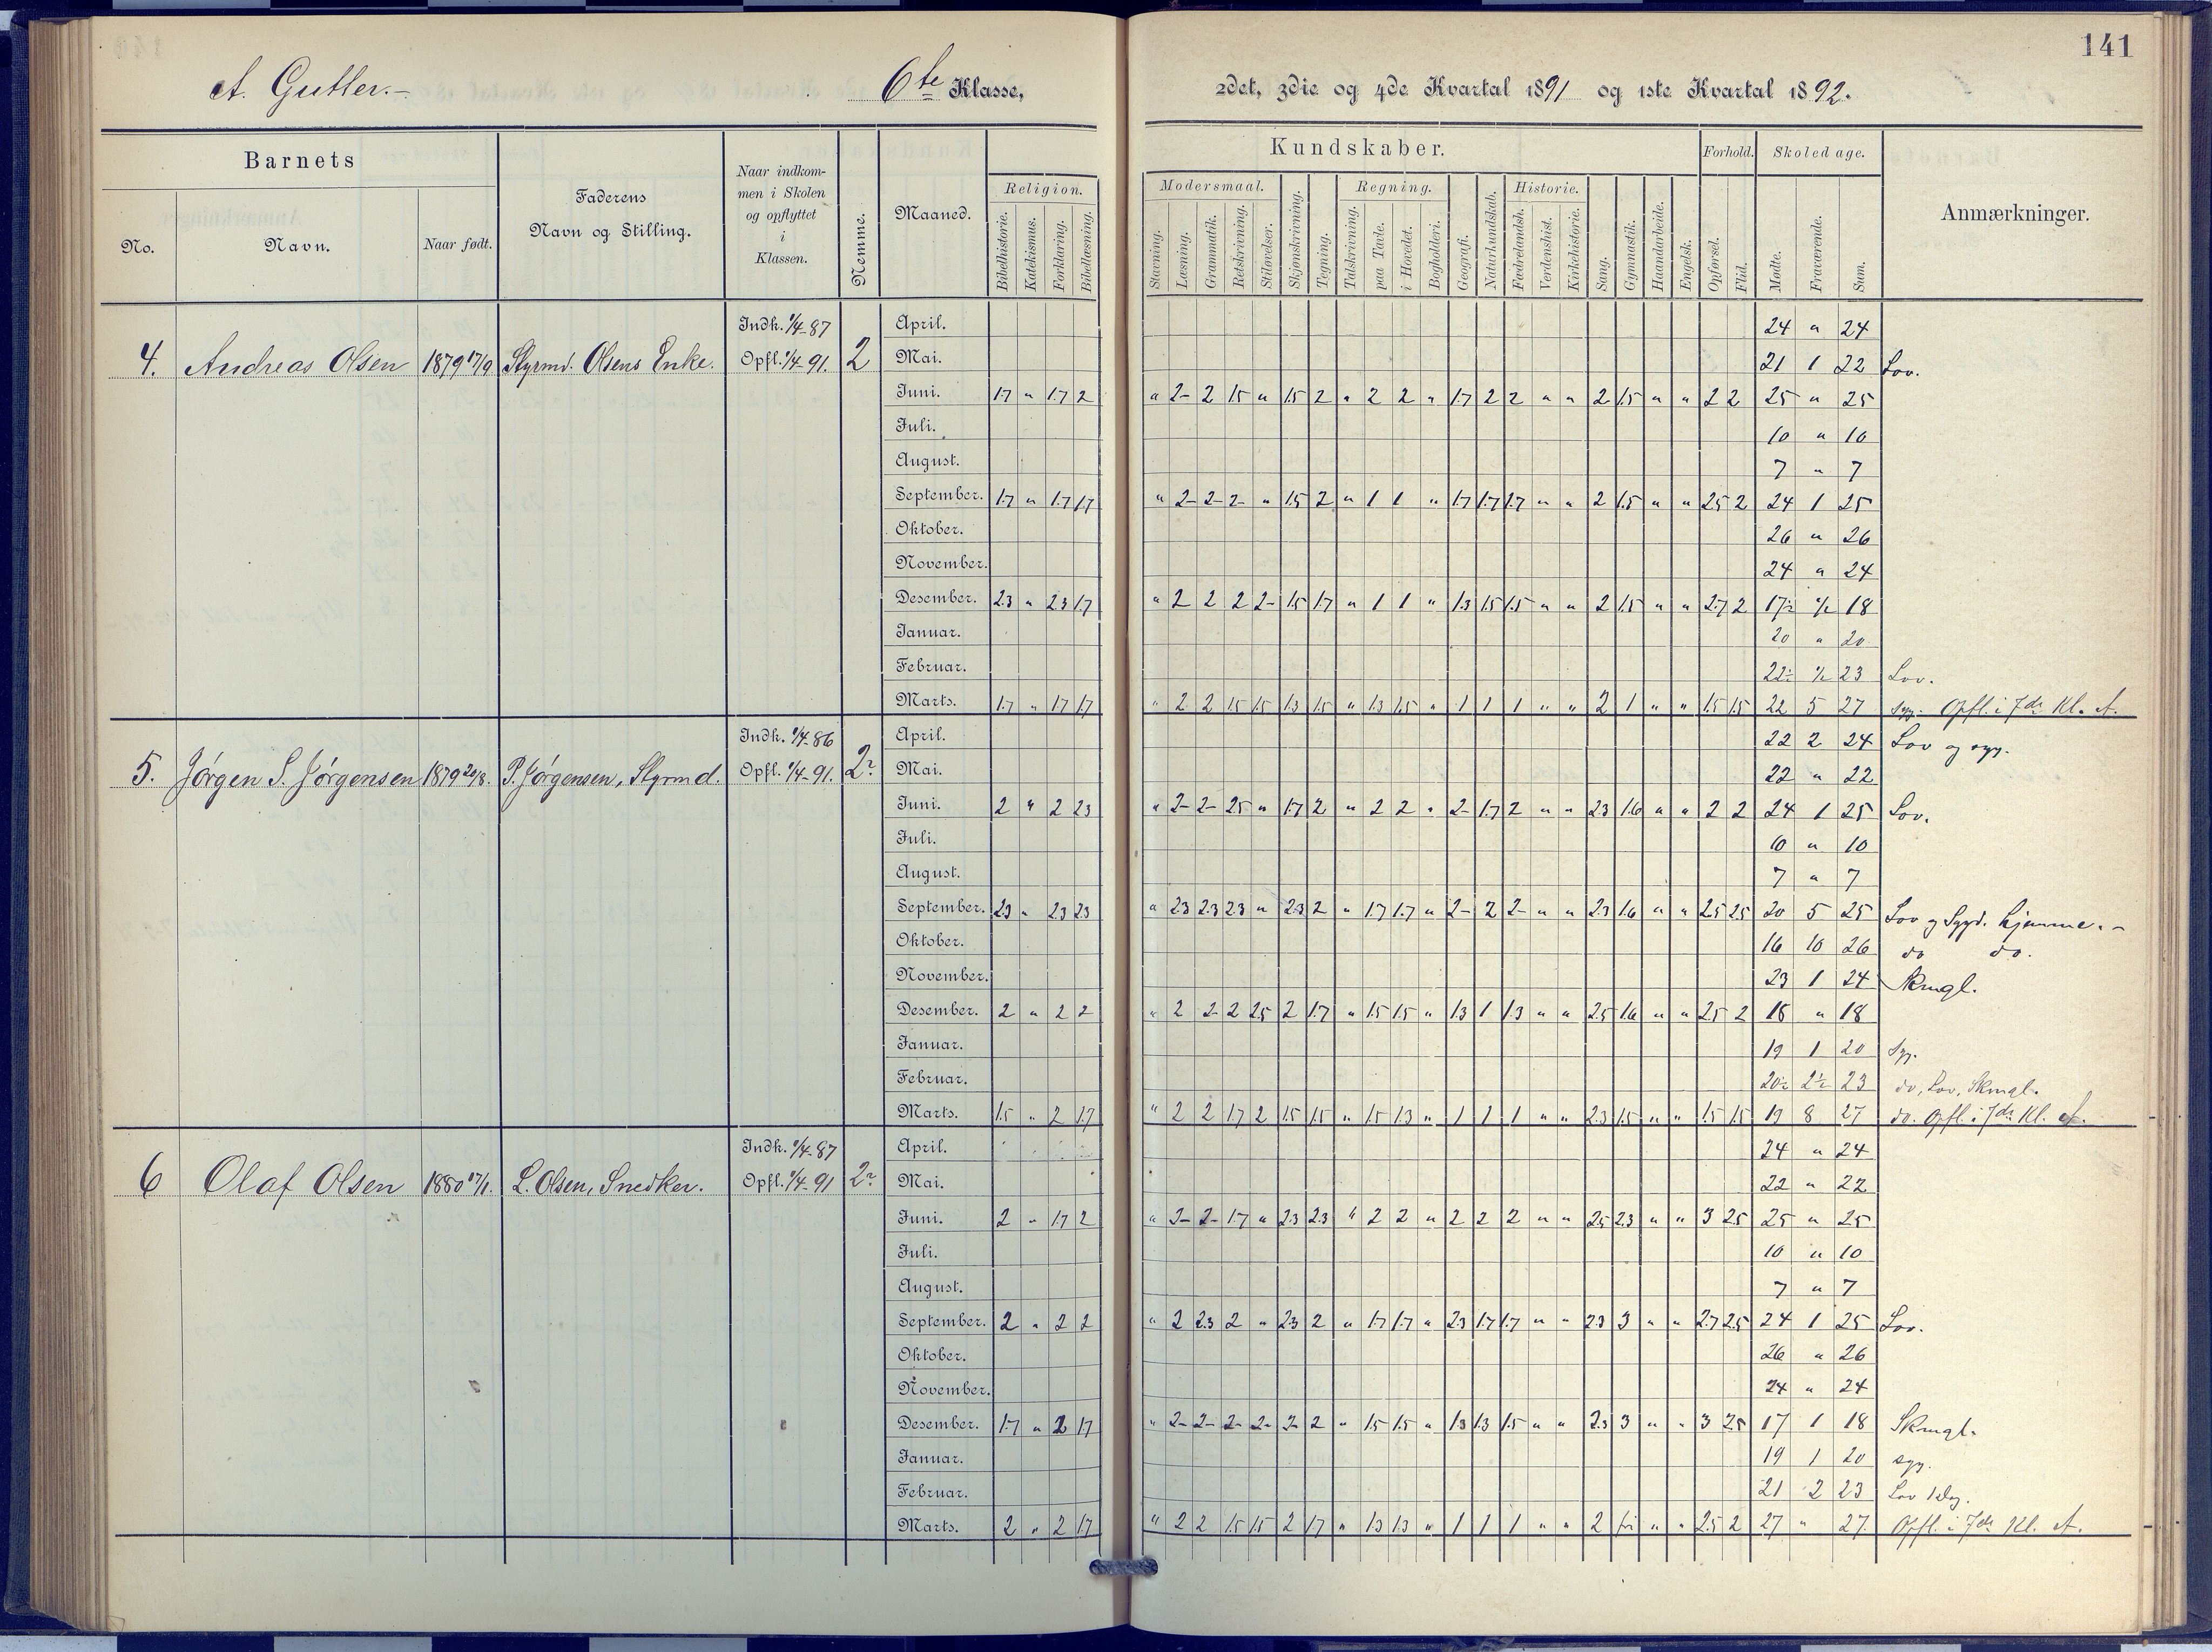 141
A. Gutter.- 6te Klasse, 2det, 3die og 4de Kvartal 1891 og 1ste Kvartal 1892.
Barnets Kundskaber. Forhold. Skoledage.
No. Navn. Naar født. Faderens Navn og Stilling. Naar indkommen i Skolen og opflyttet i Klassen. Nemme. Maaned. Religion. Modersmaal. Regning. Historie. Anmærkninger.
Bibelhistorie. Katekismus. Forklaring. Bibellæsning. Stavning. Læsning. Grammatik. Retskrivning. Stiløvelser. Skjønskrivning. Tegning. Talskrivning. paa Tavle. i Hovedet. Bogholderi. Geografi. Naturkundskab. Fædrelandsh. Verdenshist. Kirkehistorie. Sang. Gymnastik. Haandarbeide. Engelsk. Opførsel. Flid. Mødte. Fraværende. Sum.
Indk. 1/4-87 April. 24 " 24
4. Andreas Olsen 1879 17/9 Styrmd. Olsens Enke. Opfl. 1/4-91. 2 Mai. 21 1 22 Lov.
Juni. 1.7 " 1.7 2 " 2- 2 1.5 " 1.5 2 " 2 2 " 1.7 2 2 " " 2 1.5 " " 2 2 25 " 25
Juli. 10 " 10
August. 7 " 7
September. 1.7 " 1.7 1.7 " 2- 2- 2- " 1.5 2 " 1 1 " 1.7 1.7 1.7 " " 2 1.5 " " 2.5 2 24 1 25
Oktober. 26 " 26
November. 24 " 24
Desember. 2.3 " 2.3 1.7 " 2 2 2 2- 1.5 1.7 " 1 1 " 1.3 1.5 1.5 " " 2 1.5 " " 2.7 2 17½ ½ 18
Januar. 20 " 20
Februar. 22½ ½ 23 Lov.
Marts. 1.7 " 1.7 1.7 " 2 2 1.5 1.5 1.3 1.5 " 1.3 1.5 " 1 1 1 " " 2 1 " " 1.5 1.5 22 5 27 syg. Opfl. i 7de Kl. A.
Indk. 1/4-86 April. 22 2 24 Lov og syg.
5. Jørgen S. Jørgensen 1879 20/8. P. Jørgensen, Styrmd. Opfl. 1/4-91. 2- Mai. 22 " 22
Juni. 2 " 2 2.3 " 2- 2- 2.5 " 1.7 2 " 2 2 " 2- 1.7 2 " " 2.3 1.6 " " 2 2 24 1 25 Lov.
Juli. 10 " 10
August. 7 " 7
September. 2.3 " 2.3 2.3 " 2.3 2.3 2.3 " 2.3 2 " 1.7 1.7 " 2- 2 2- " " 2.3 1.6 " " 2.5 2.5 20 5 25 Lov og Sygd. hjemme.-
Oktober. 16 10 26 do do.
November. 23 1 24 Skmgl.
Desember. 2 " 2 2 " 2 2 2 2.5 2 1.7 " 1.5 1.5 " 1.3 1 1.3 " " 2.5 1.6 " " 2.5 2 18 " 18
Januar. 19 1 20 Syg.
Februar. 20½ 2½ 23 do, Lov, Skmgl.
Marts. 1.5 " 2 1.7 " 2 2 1.7 2 1.5 1.5 " 1.5 1.3 " 1 1 1 " " 2.3 1.5 " " 1.5 1.5 19 8 27 do. Opfl. i 7de Kl. A.
Indk. 1/4-87 April. 24 " 24
6 Olaf Olsen 1880 17/1. L. Olsen, Snedker. Opfl. 1/4-91 2- Mai. 22 " 22
Juni. 2 " 1.7 2 " 2- 2- 1.7 " 2.3 2.3 " 2 2 " 2 2 2 " " 2.5 2.3 " " 3 2.5 25 " 25
Juli. 10 " 10
August. 7 " 7
September. 2 " 2 2 " 2 2.3 2 " 2.3 2 " 1.7 1.7 " 2.3 1.7 1.7 " " 2.3 3 " " 2.7 2.5 24 1 25 Lov.
Oktober. 26 " 26
November. 24 " 24
Desember. 1.7 " 2 1.7 " 2- 2- 2- 2- 2- 2 " 1.5 1.5 " 1.3 1.3 1.5 " " 2.3 3 " " 3 2.5 17 1 18 Skmgl.
Januar. 19 1 20 syg.
Februar. 21 2 23 Lov 1 dag.
Marts. 2 " 2 1.7 " 2 2 1.5 1.5 2 1.7 " 1.3 1.3 " 1 1 1 " " 2 fri " " 2.5 2 27 " 27 Opfl. i 7de Kl. A.